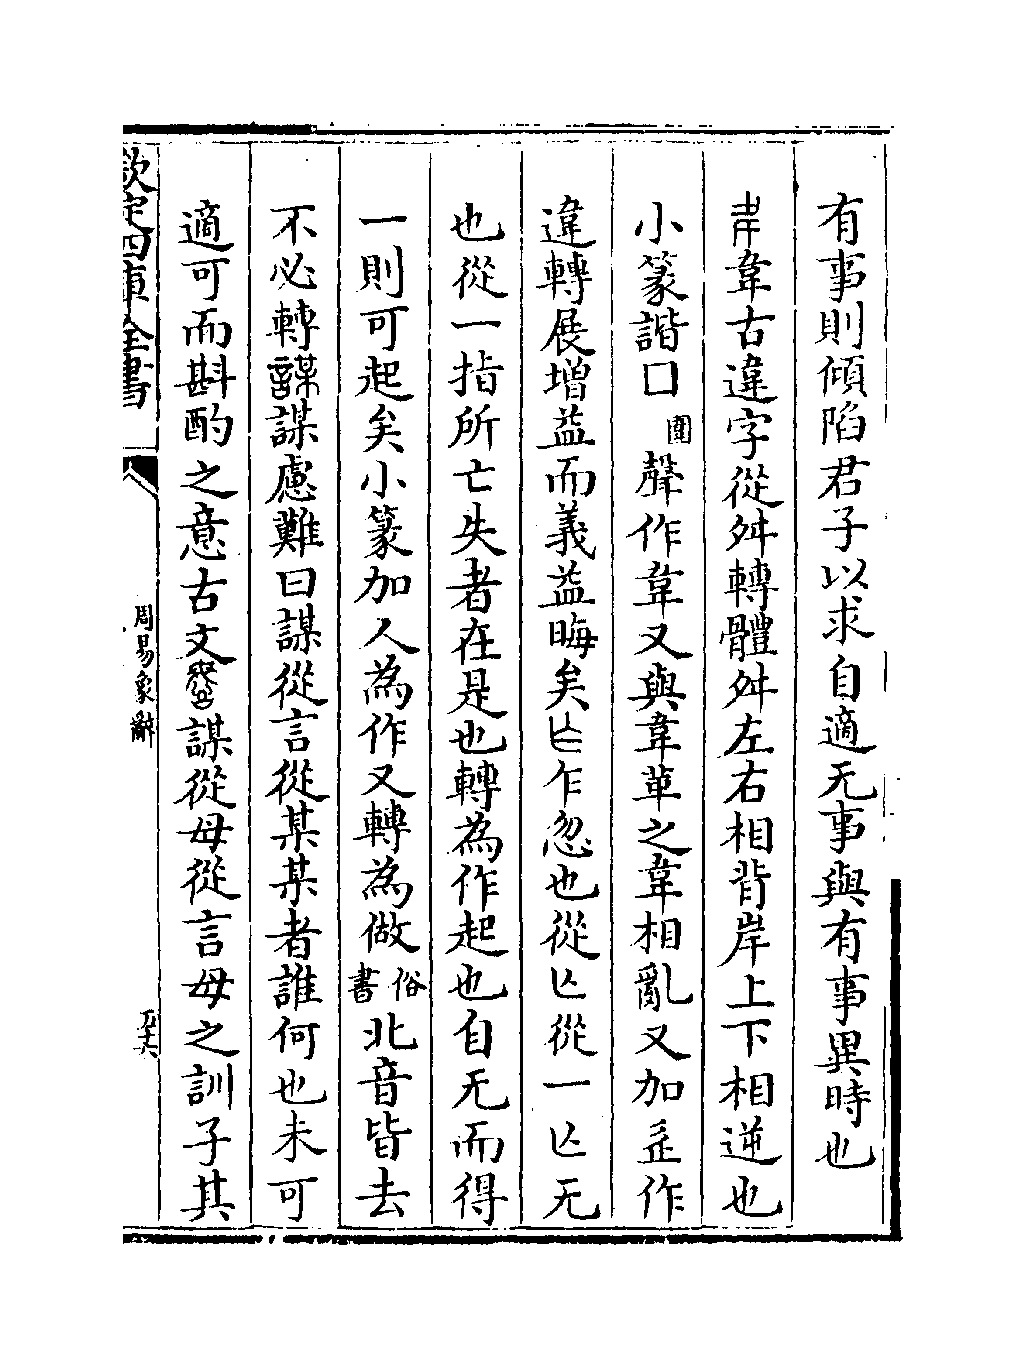 有事則傾陷君子以求自適无事與有事異時也
韋古違字從舛轉體舛左右相背岸上下相逆也
小篆諧囗圍聲作韋又與韋革之韋相亂又加辵作
違轉展增益而義益晦矣乍忽也從亾從一亾无
也從一指所亡失者在是也轉為作起也自无而得
一則可起矣小篆加人為作又轉為做俗書北音皆去
不必轉謀慮難曰謀從言從某某者誰何也未可
適可而斟酌之意古文謀從母從言母之訓子其
欽定四庫全書
周易象辭
五十六